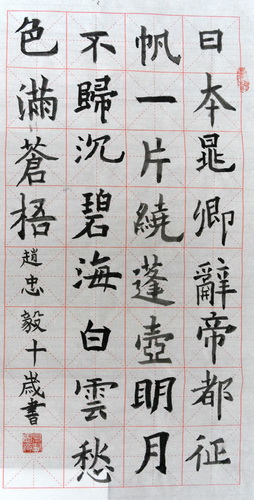 日本晁卿辭帝都征
帆一片繞蓬壺明月
不歸沉碧海白雲愁
色滿蒼梧
趙忠毅十歲書